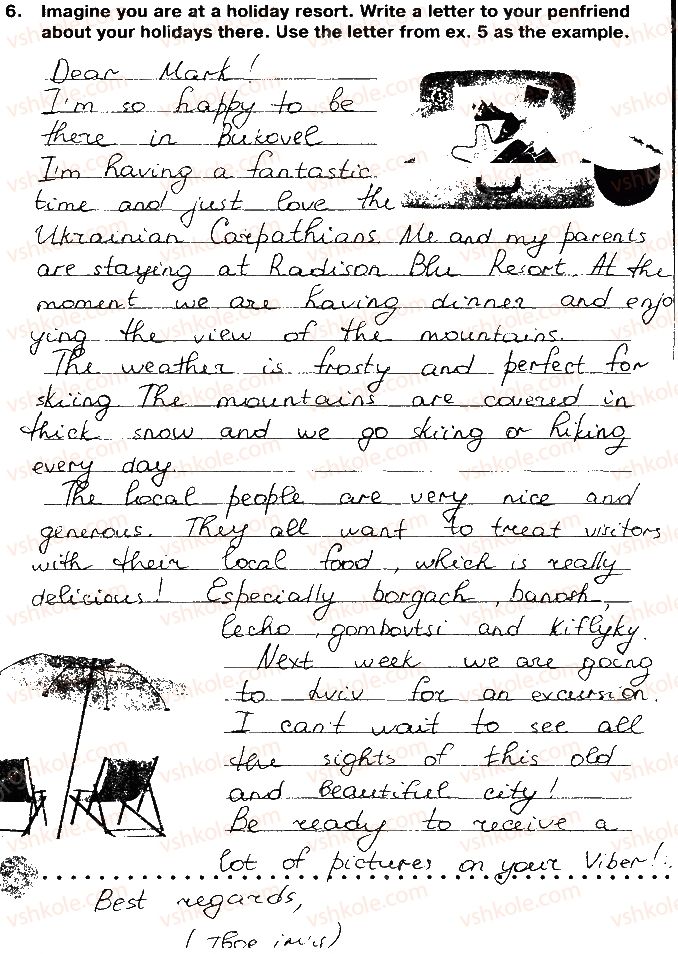 6. Imagine you are at a holiday resort. Write a letter to your penfriend
about your holidays there. Use the letter from ex. 5 as the example.
Dear Mark!
I'm so happy to be
there in Bukovel
I'm having a fantastic
time and just love the
Ukrainian Carpathians. Me and my parents
are staying at Radison Blu Resort. At the
moment we are having dinner and enjo
ying the view of the mountains.
The weather is frosty and perfect for
skiing. The mountains are covered in
thick snow and we go skiing or hiking
every day.
The local people are very nice and
generous. They all want to treat visitors
with their local food, which is really
delicious! Especially borgach, banosh,
lecho, gombovtsi and kiflyky.
Next week we are going
to Lviv for an excursion.
I can't wait to see all
the sights of this old
and beautiful city!
Be ready to receive a
lot of pictures on your Viber!
Best regards,
(Твоє ім'я)
vshkole.com